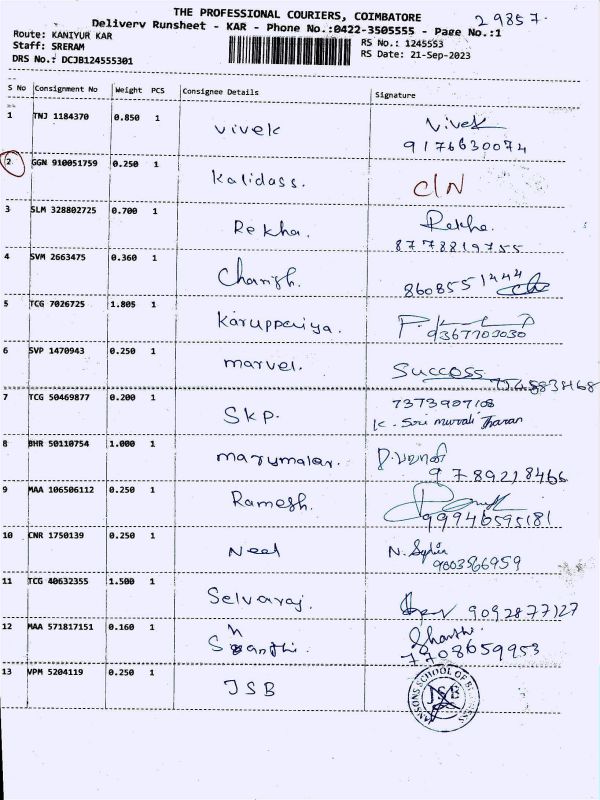 THE PROFESSIONAL COURIERS, COIMBATORE
29857.
Delivery Runsheet - KAR - Phone No.:0422-3505555 - Page No.:1
Route: KANIYUR KAR
RS No.: 1245553
Staff: SRERAM
RS Date: 21-Sep-2023
DRS No.: DCJB124555301
S No Consignment No Weight PCS Consignee Details Signature
1 TNJ 1184370 0.850 1 Vivek Vivek
9176630074
2 GGN 910051759 0.250 1 Kalidass. C/N
3 SLM 328802725 0.700 1 Rekha. Rekha.
8778819755
4 SVM 2663475 0.360 1 8608551444
5 TCG 7026725 1.805 1 Karuppaiya.
9367703030
6 SVP 1470943 0.250 1 marvel. Success
7 TCG 50469877 0.200 1 SKP. 7373907108
K. Sri murali Tharan
8 BHR 50110754 1.000 1 marumalar.
9789218466
9 MAA 106506112 0.250 1 Ramesh.
99946595181
10 CNR 1750139 0.250 1 Neel N.
9003966959
11 TCG 40632355 1.500 1 Selvaraj. 9092877127
12 MAA 571817151 0.160 1 Shanthi. Shanthi.
7708659953
13 VPM 5204119 0.250 1 JSB JSB
JANSONS SCHOOL OF BUSINESS